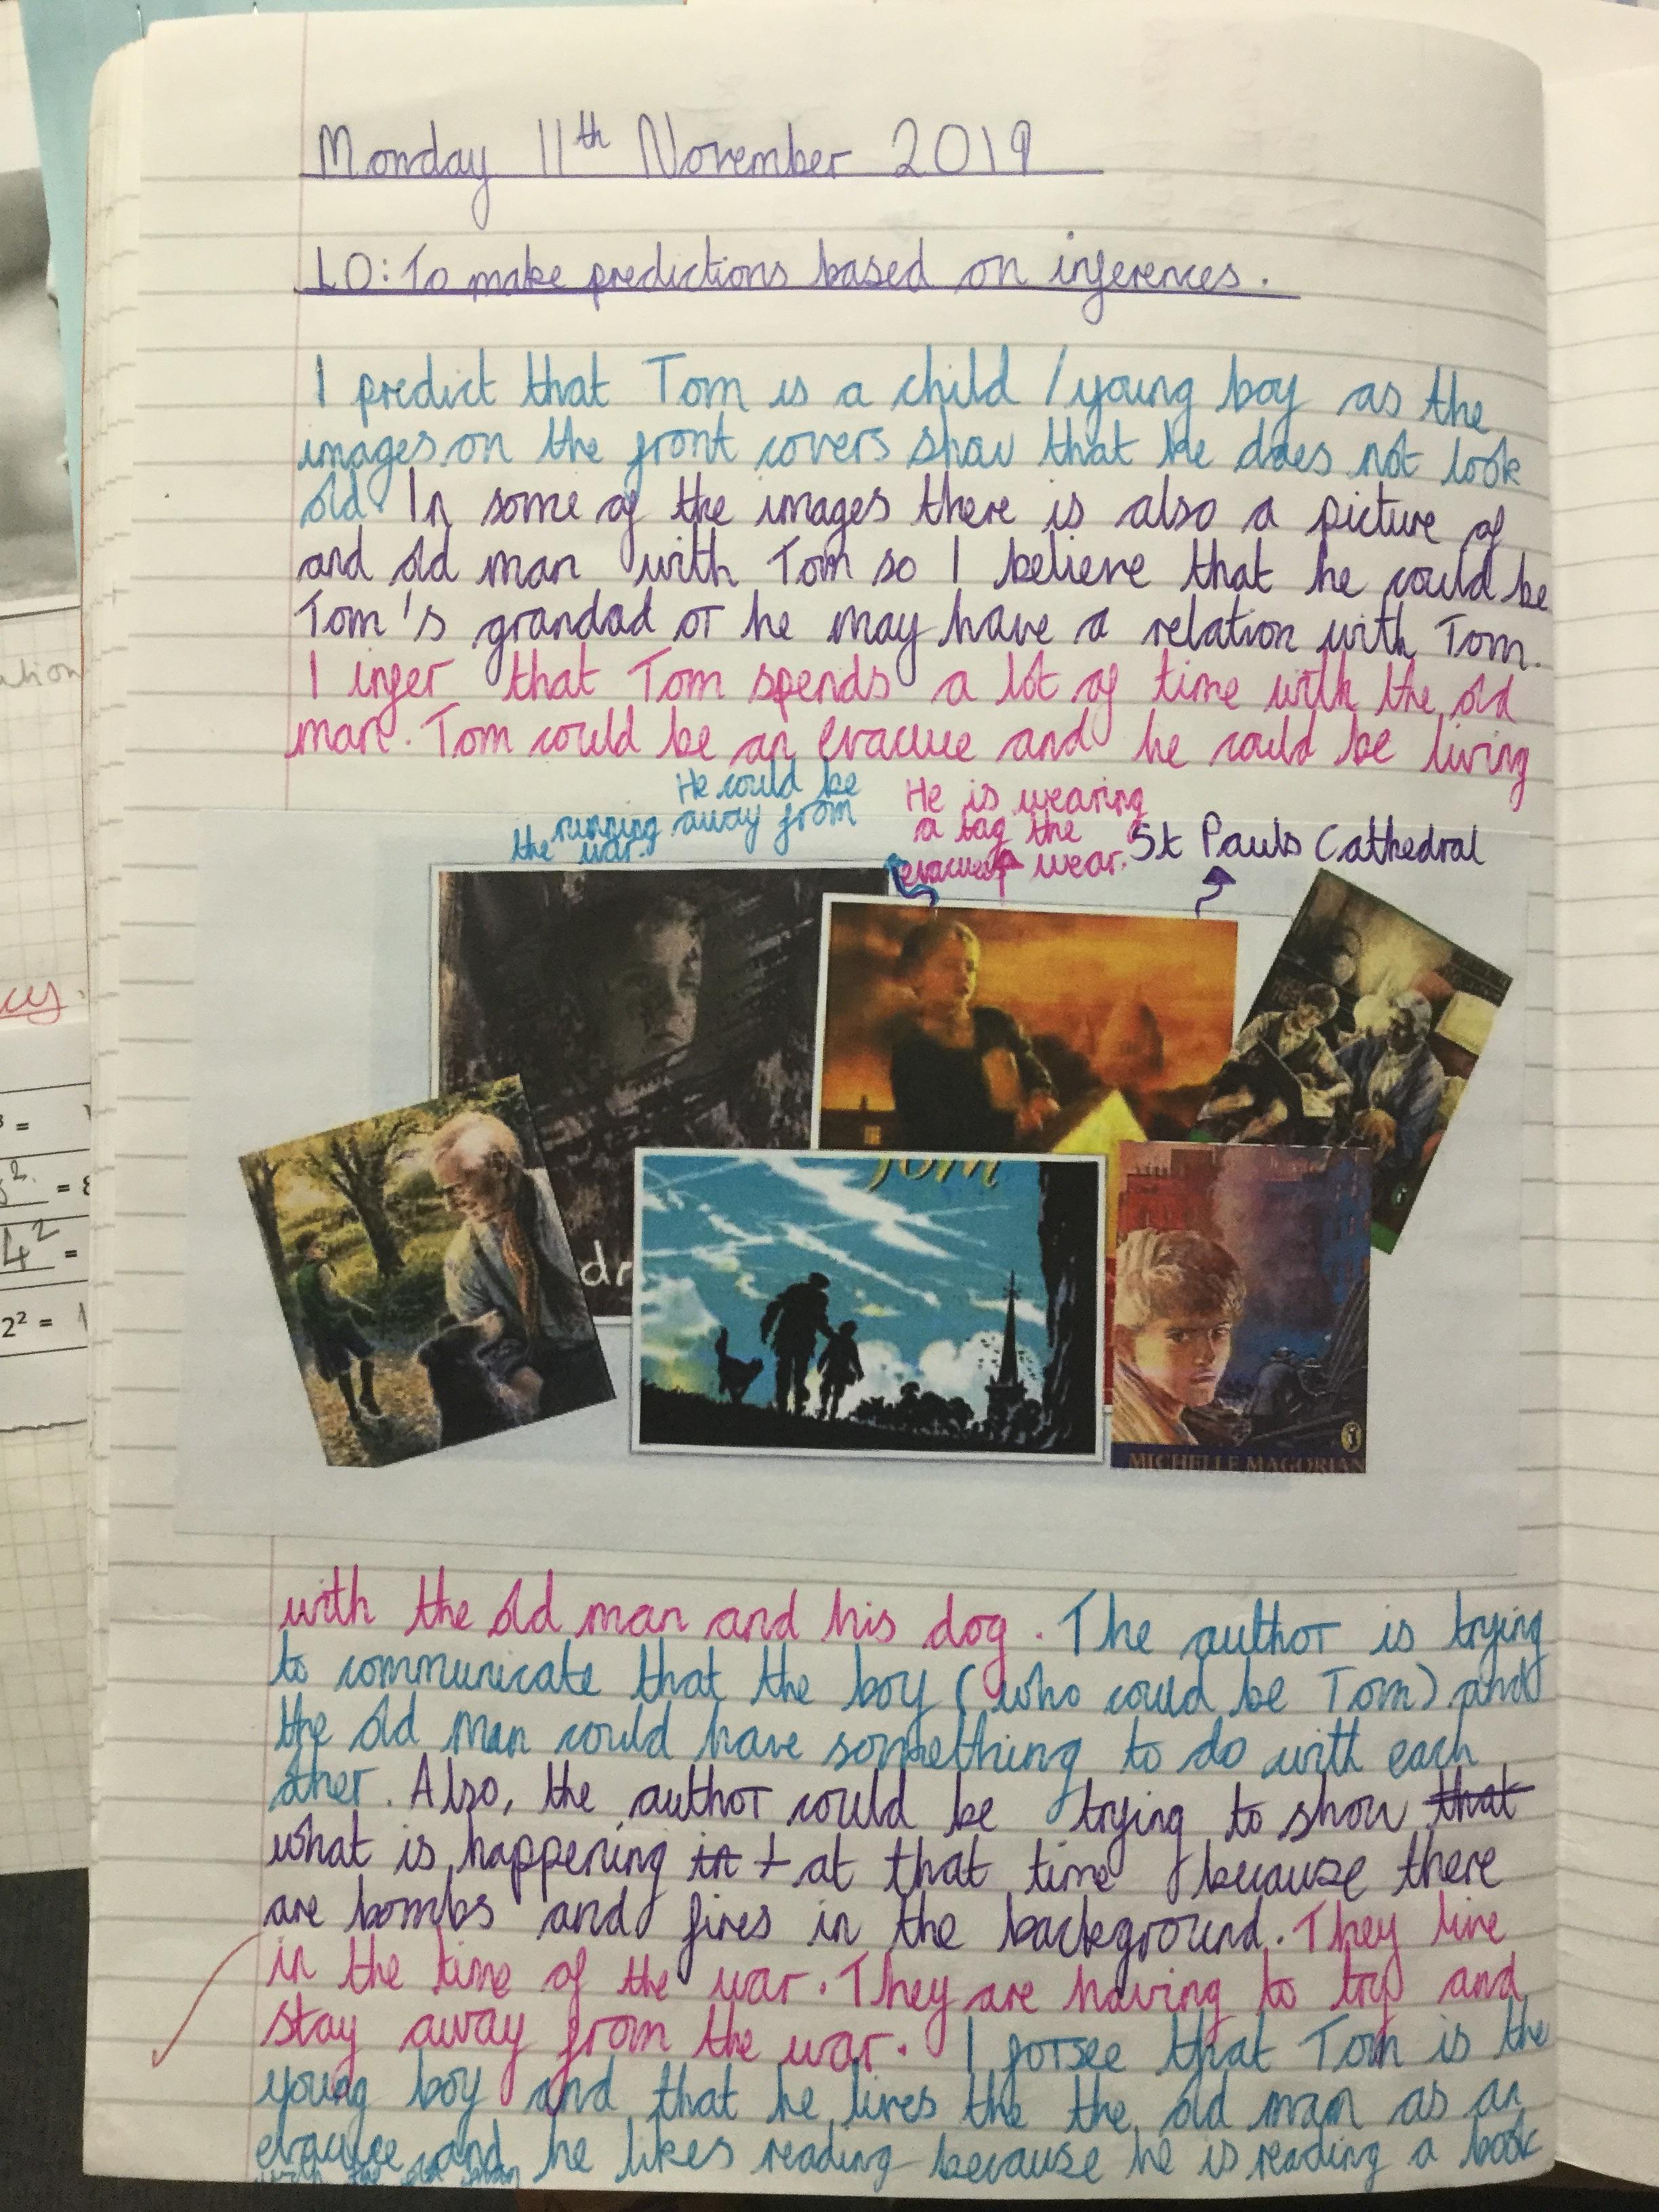 Monday 11th November 2019
LO: To make predictions based on inferences.
I predict that Tom is a child / young boy as the
images on the front covers show that he does not look
old. In some of the images there is also a picture of
and old man with Tom so I believe that he could be
Tom's grandad or he may have a relation with Tom.
I infer that Tom spends a lot of time with the old
man. Tom could be an evacuee and he could be living
He could be
running away from
the war.
He is wearing
a tag the
evacuees wear.
St Pauls Cathedral
dr
Tom
MICHELLE MAGORIAN
with the old man and his dog. The author is trying
to communicate that the boy (who could be Tom) and
the old man could have something to do with each
other. Also, the author could be trying to show that
what is happening in t at that time because there
are bombs and fires in the background. They live
in the time of the war. They are having to try and
stay away from the war. I forsee that Tom is the
young boy and that he lives the the old man as an
evacuee and he likes reading because he is reading a book
with the old man
ation
cy.
3 =
2 = 8
4² =
2² = 1